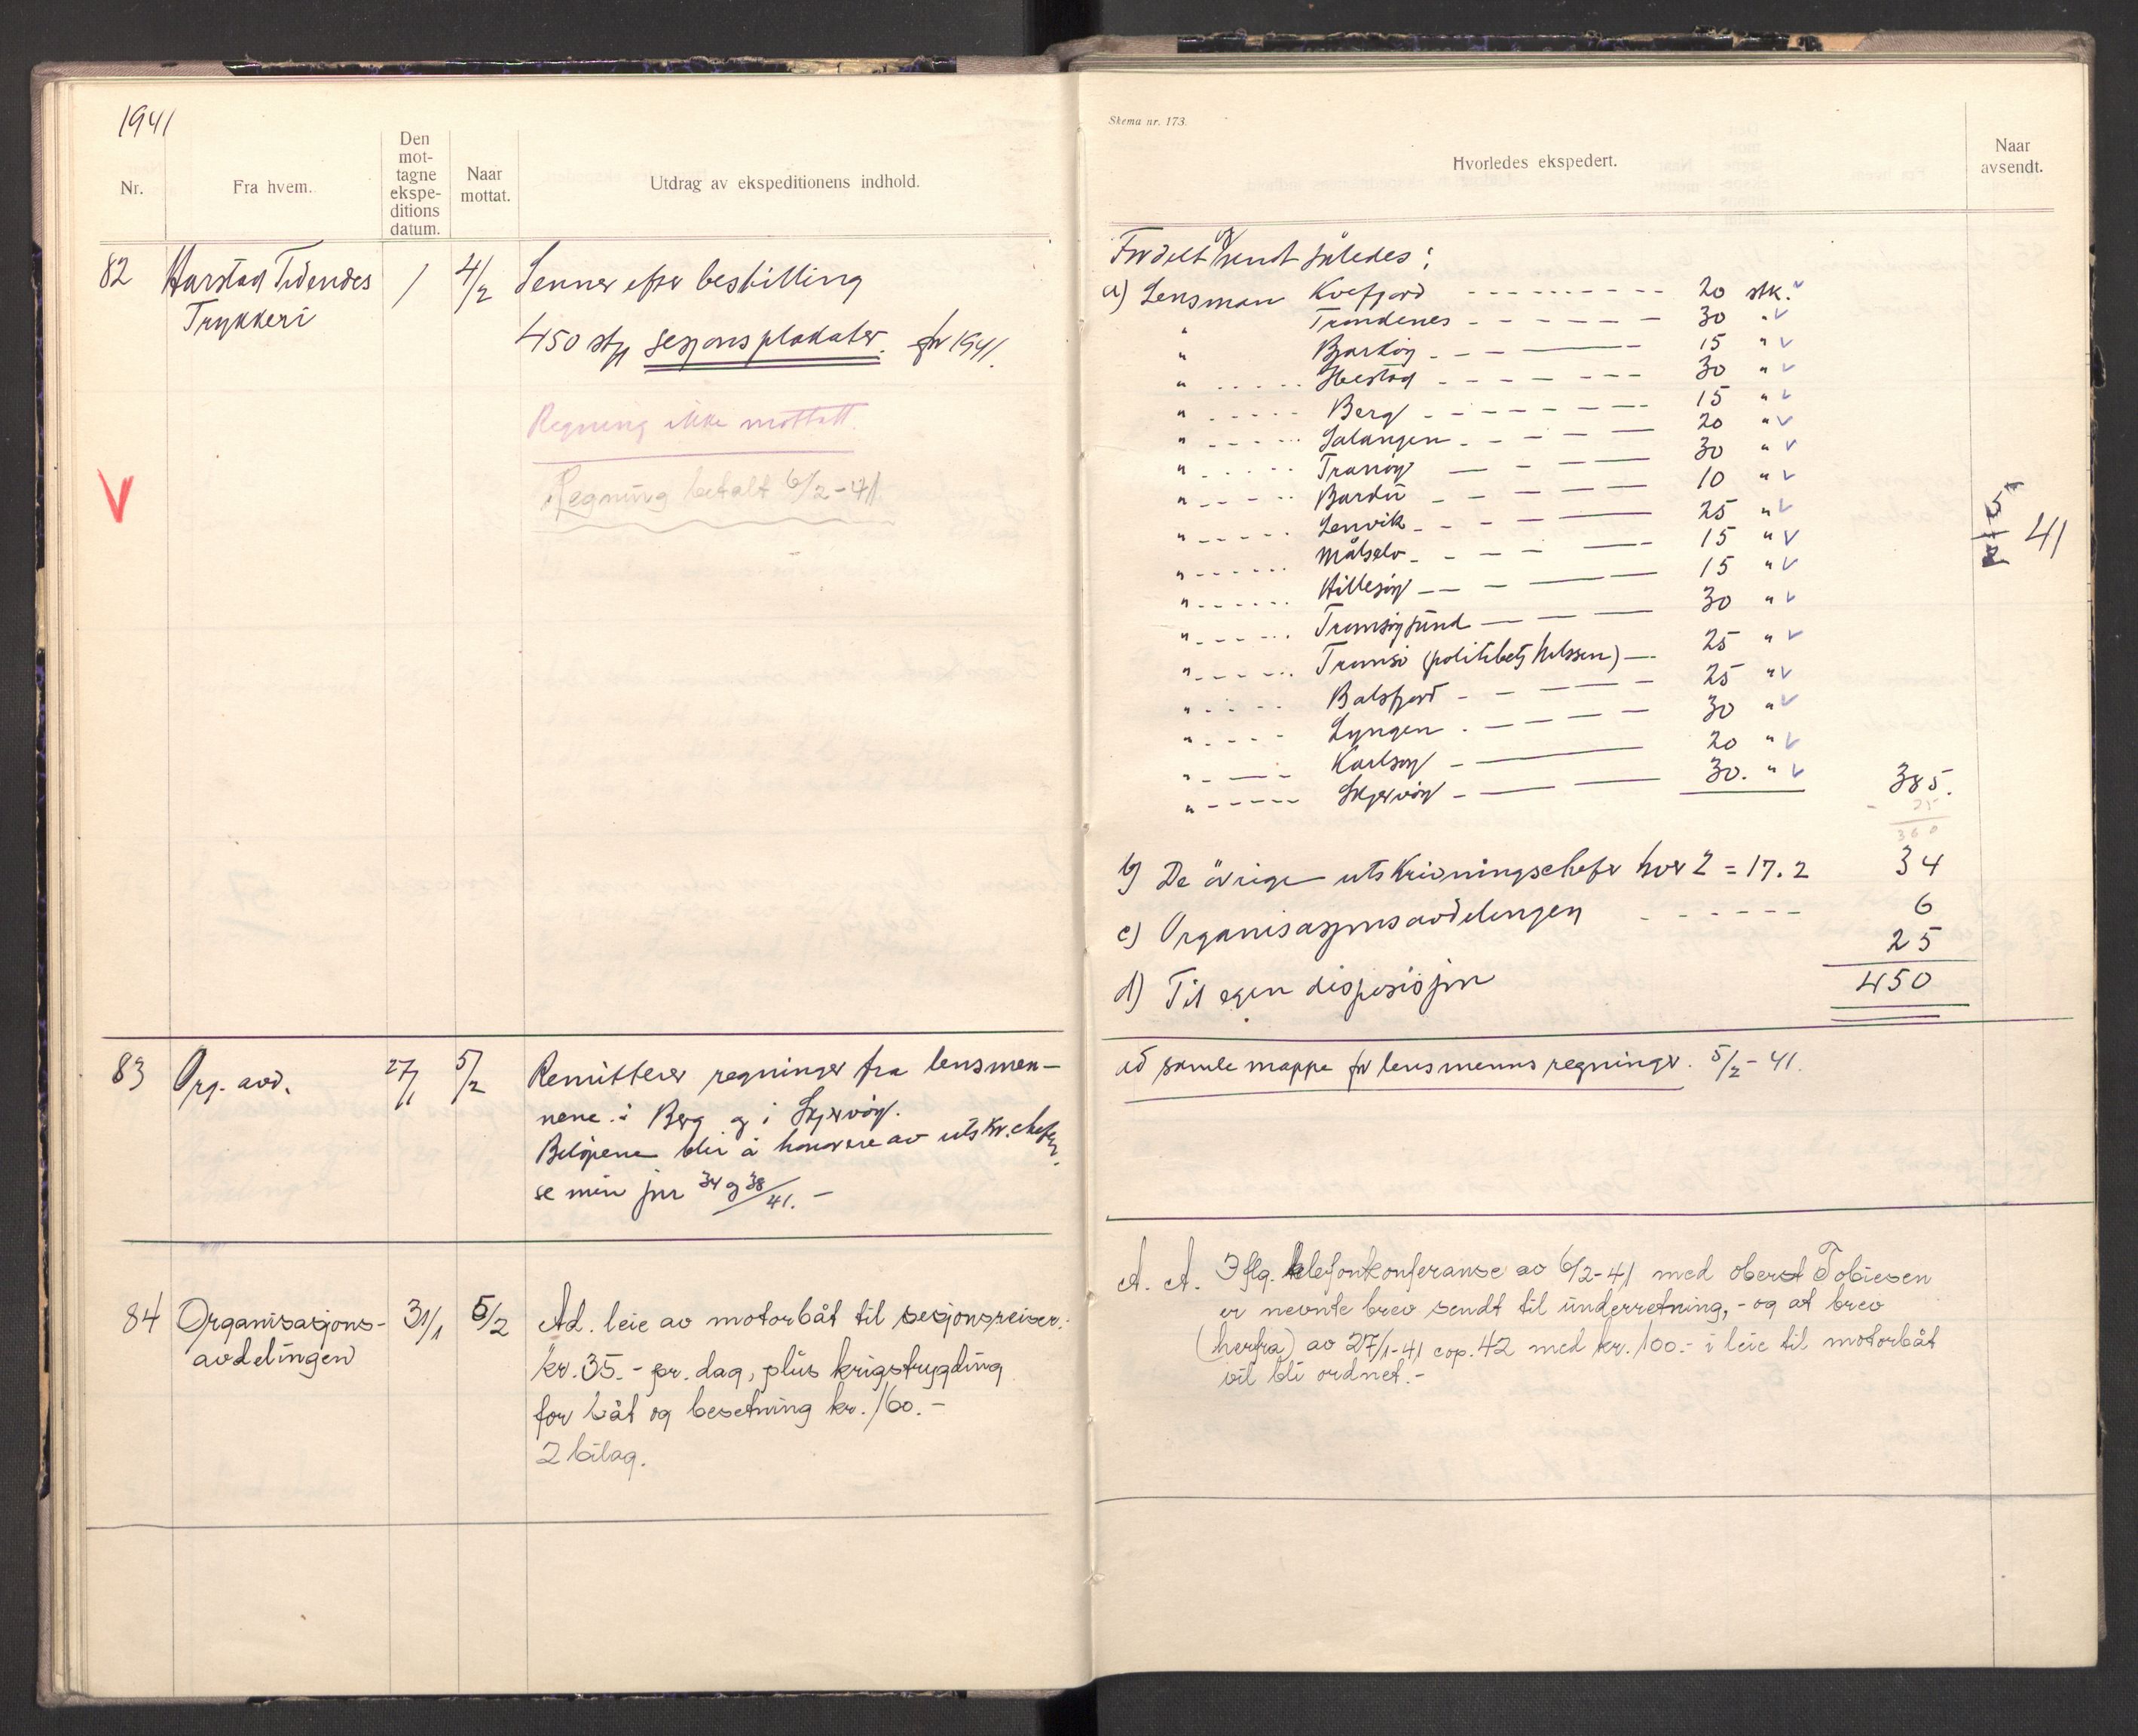 1941
Nr.
Fra hvem.
Den mot-
tagne
ekspe-
ditions
datum.
Naar
mottat.
Utdrag av ekspeditionens indhold.
82 Harstad Tidendes / 4/2 Senner efter bestilling
Trykkeri
450 stk sesjonsplakater. for 1941.
Regning ikke mottatt.
V
Regning betalt 6/2-41.
83 Org. avd. 27/1 5/2 Remitterer regninger fra lensmen-
nene i Berg og i Skjervøy.
Beløpene blir å honorere av utskr.chefen
se min jnr 34 og 38/41. -
84 Organisasjons- 31/1 5/2 Ad. leie av motorbåt til sesjonsreiser.
avdelingen
kr. 35.- pr. dag, plus krigstrygding
for båt og besetning kr. 160.-
2 bilag.
Skema nr. 173.
Hvorledes ekspedert.
Naar
avsendt.
Fordelt og sendt således:
a) Lensman Kvefjord - - - 20 stk. v
" Trondenes - - - 30 " v
" Bjarkøy - - - 15 " v
" Ibestad - - - 30 " v
" Berg - - - 15 " v
" Salangen - - - 20 " v
" Tranøy - - - 30 " v
" Bardu - - - 10 " v
" Lenvik - - - 25 " v
" Målselv - - - 15 " v
" Hillesøy - - - 15 " v
" Tromsøysund - - - 30 " v
" Tromsö (politibetj Nilssen) - 25 " v
" Balsfjord - - - 25 " v
" Lyngen - - - 30 " v
" Karlsøy - - - 20 " v
" Skjervøy - - - 30. " v 385.
- 25
360
5/2 41
b) De övrige utskrivningschefer hver 2 = 17.2 34
c) Organisasjonsavdelingen - - - 6
25
d) Til egen disposisjon
450
ad samle mappe for lensmenns regninger. 5/2-41.
A. A. Iflg. telefonkonferanse av 6/2-41 med oberst Tobiesen
er nevnte brev sendt til underretning, - og at brev
(herfra) av 27/1-41 cop. 42 med kr. 100.- i leie til motorbåt
vil bli ordnet.-